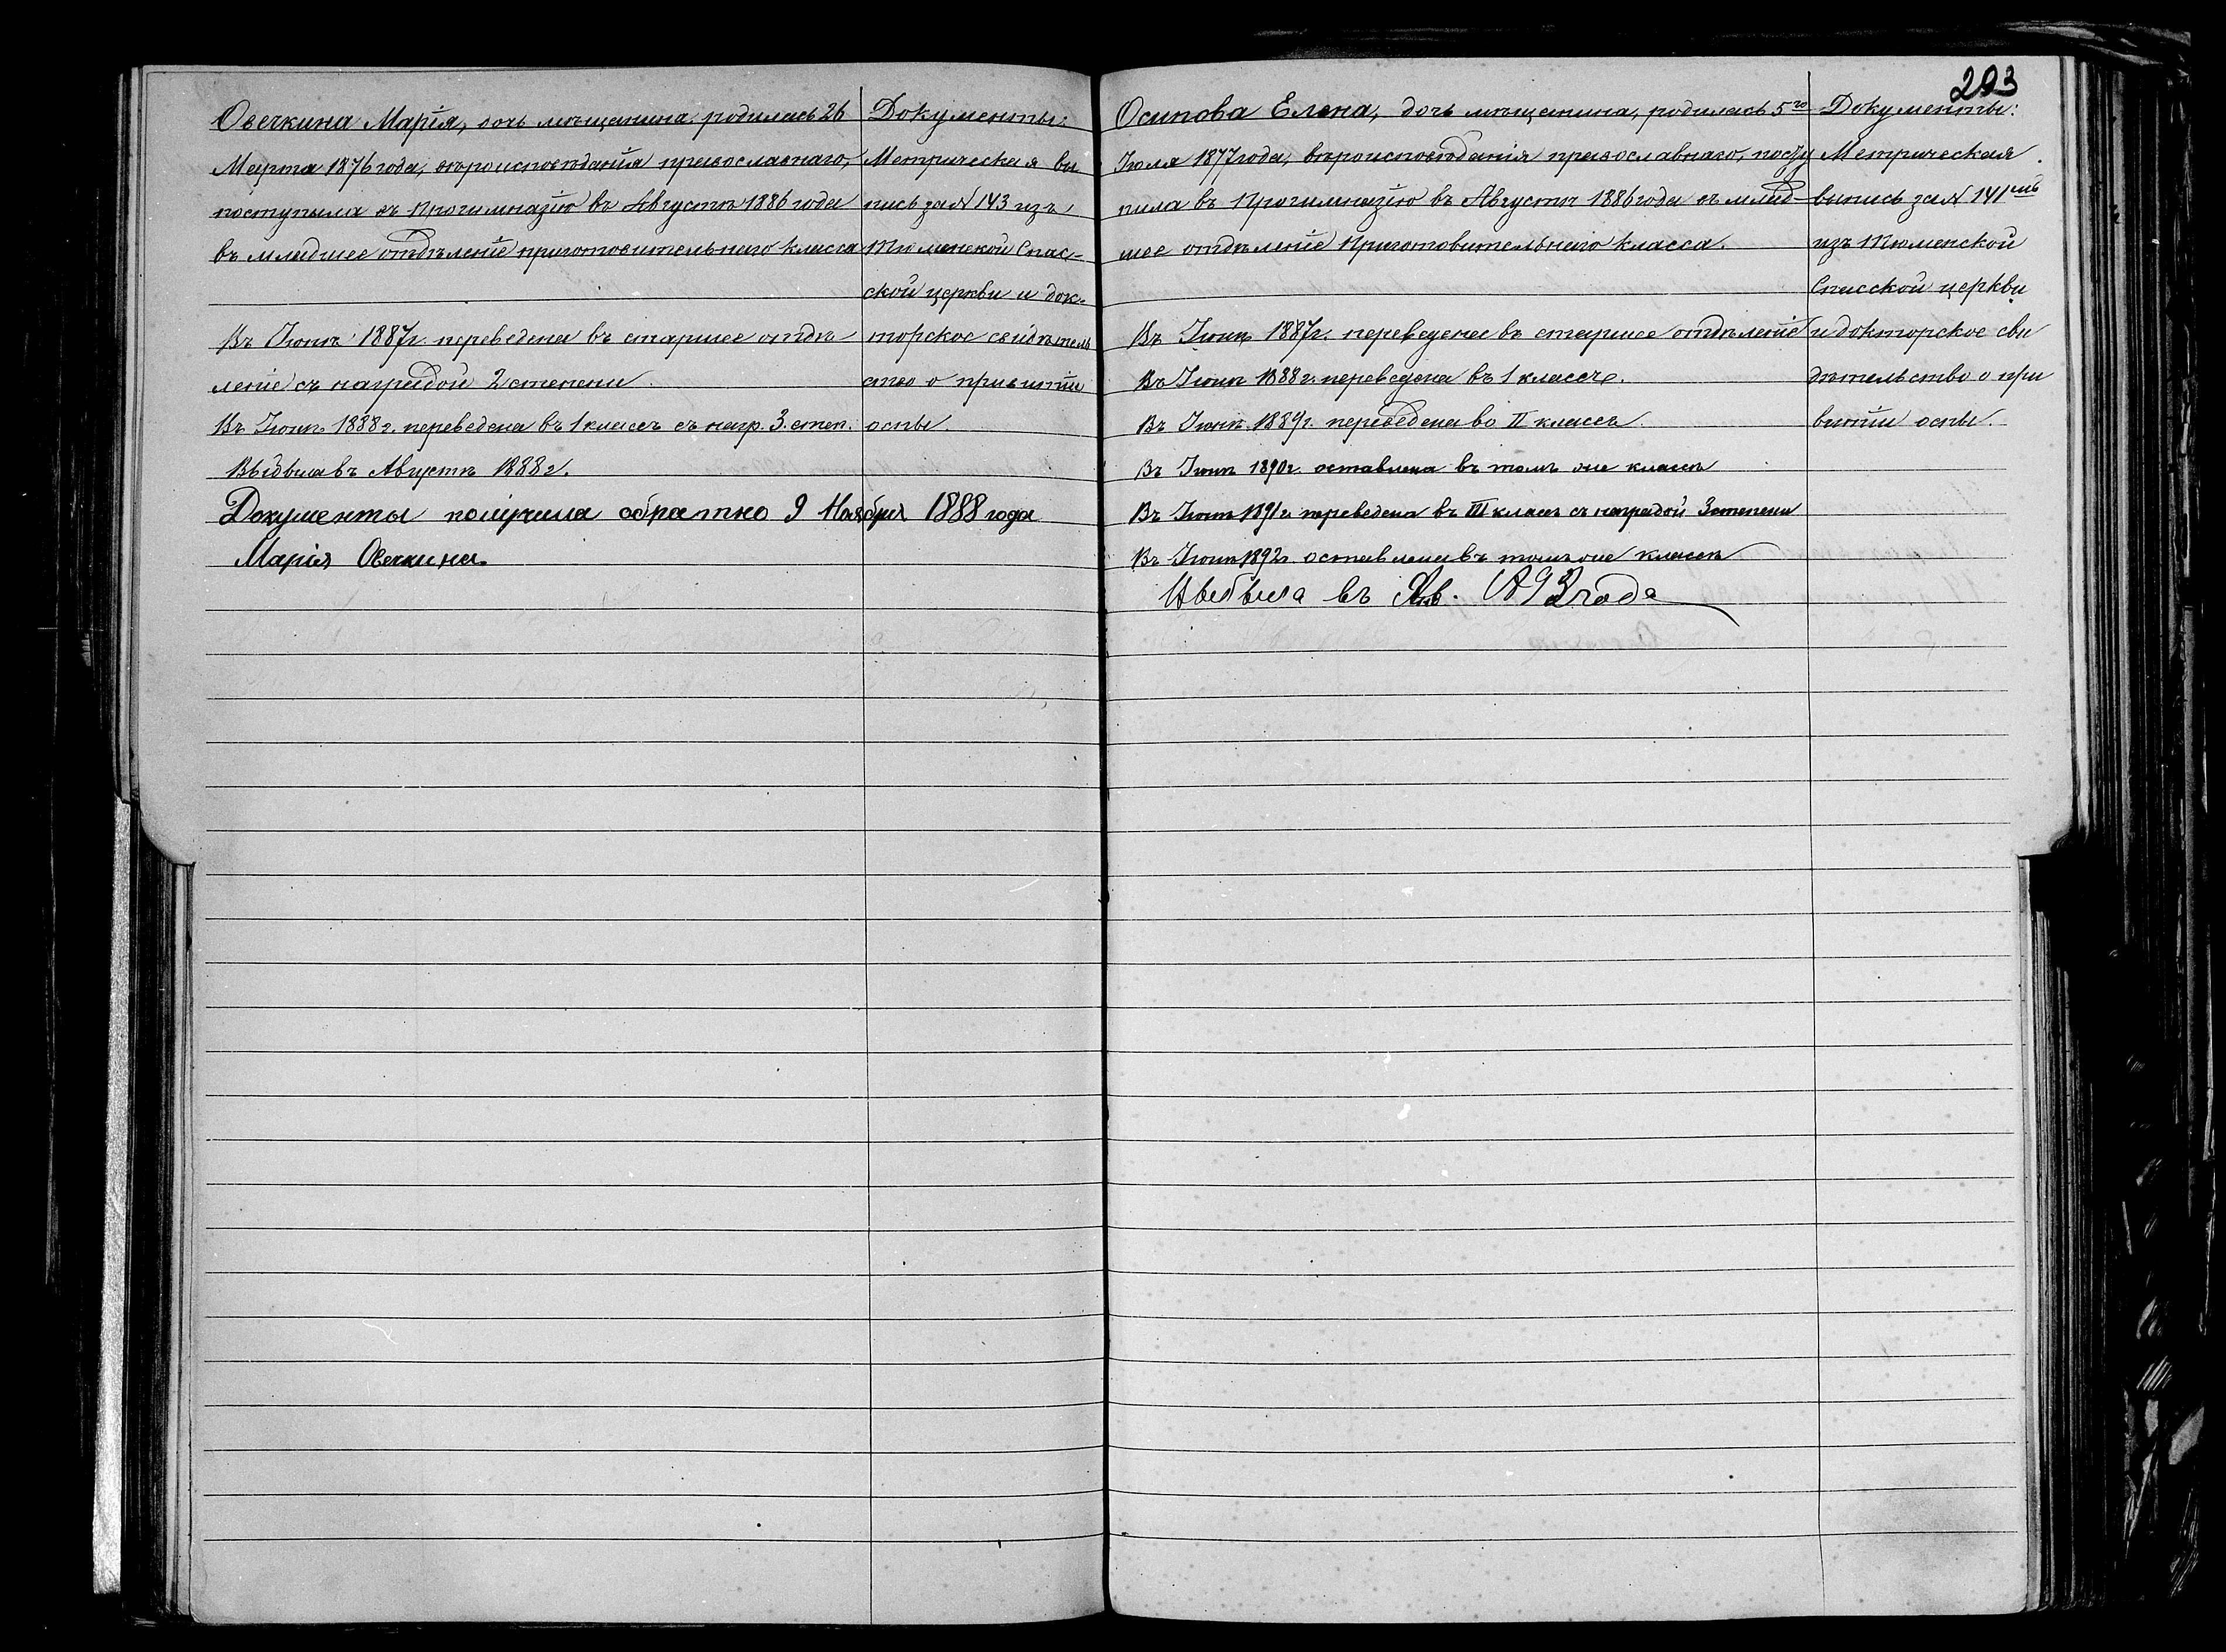 Овечкина Марія, дочь мѣщанина родилась 26
Марта 1876 года, вѣроисповѣданія православнаго,
поступила въ прогимназію въ Августѣ 1886 года
въ младшее отдѣленіе приготовительнаго класса
Въ Іюнѣ 1887г. переведена въ старшее отдѣ
леніе съ наградой 2 степени
Въ Іюнѣ 1888 г. переведена въ 1 классъ съ нагр. 3. степ.
Выбыла въ Августѣ 1888 г.
Документы получила обратно 9 Ноября 1888 года
Марія Овечкина
Документы:
Метрическая вы
пись за № 143 изъ
Тюменской Спас-
ской церкви и док-
торское свидѣтель
ство о привитіи
оспы.
203
Осипова Елена, дочь мѣщанина, родилась 5го
Іюля 1877 года, вѣроисповѣданія православнаго, посту
пила въ Прогимназію въ Августѣ 1886 года въ млад-
шее отдѣленіе Приготовительнаго класса.
Въ Іюнѣ 1887г. переведена въ старшее отдѣленіе
Въ Іюнѣ 1888 г. переведена въ 1 классъ.
Въ Іюнѣ 1889г. переведена во II классъ
Въ Іюнѣ 1890г. оставлена въ томъ же классѣ
Въ Іюнѣ 1891 г. переведена въ III классъ съ наградой 3 степени
Въ Іюнѣ 1892г. оставлена въ томъ же классѣ
Выбыла въ Янв. 1893 года
Документы:
Метрическая
выпись за № 141мъ
изъ Тюменской
Спасской церкви
и докторское сви
дѣтельство о при
витіи оспы.